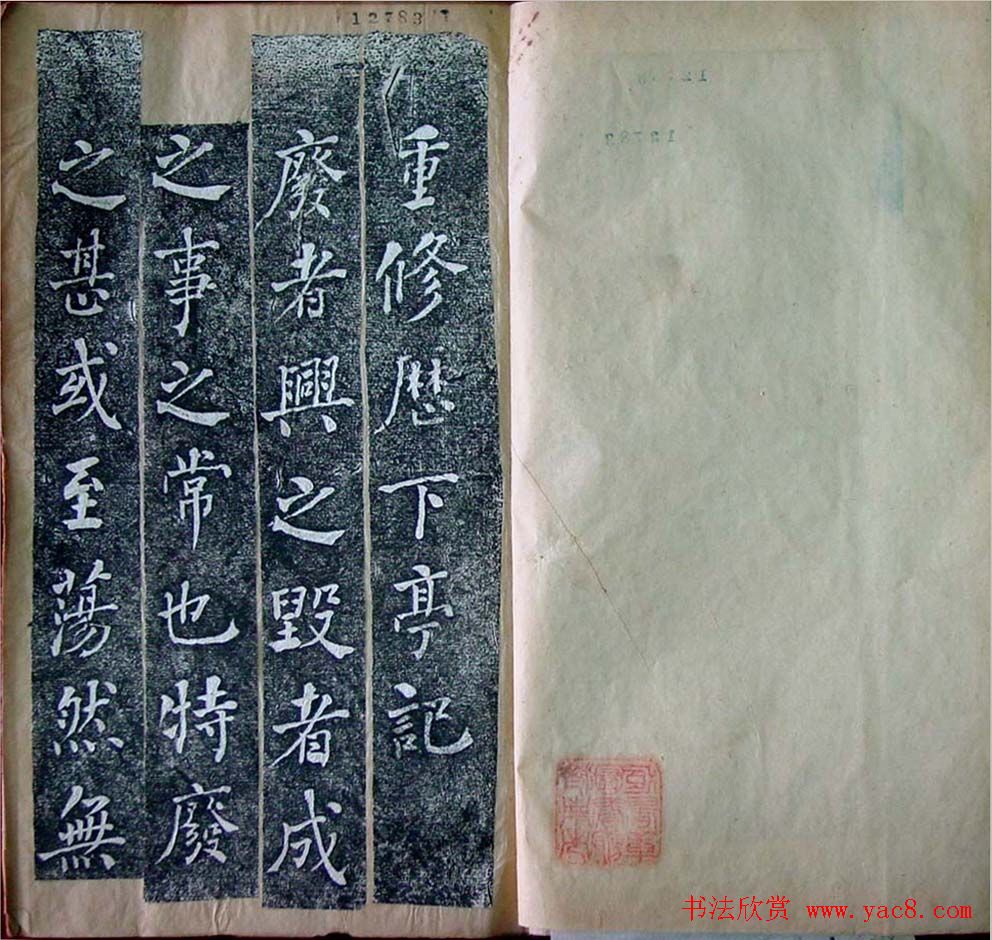 12783
重修歷下亭記
廢者興之毀者成
之事之常也特廢
之甚或至蕩然無
书法欣赏 www.yac8.com